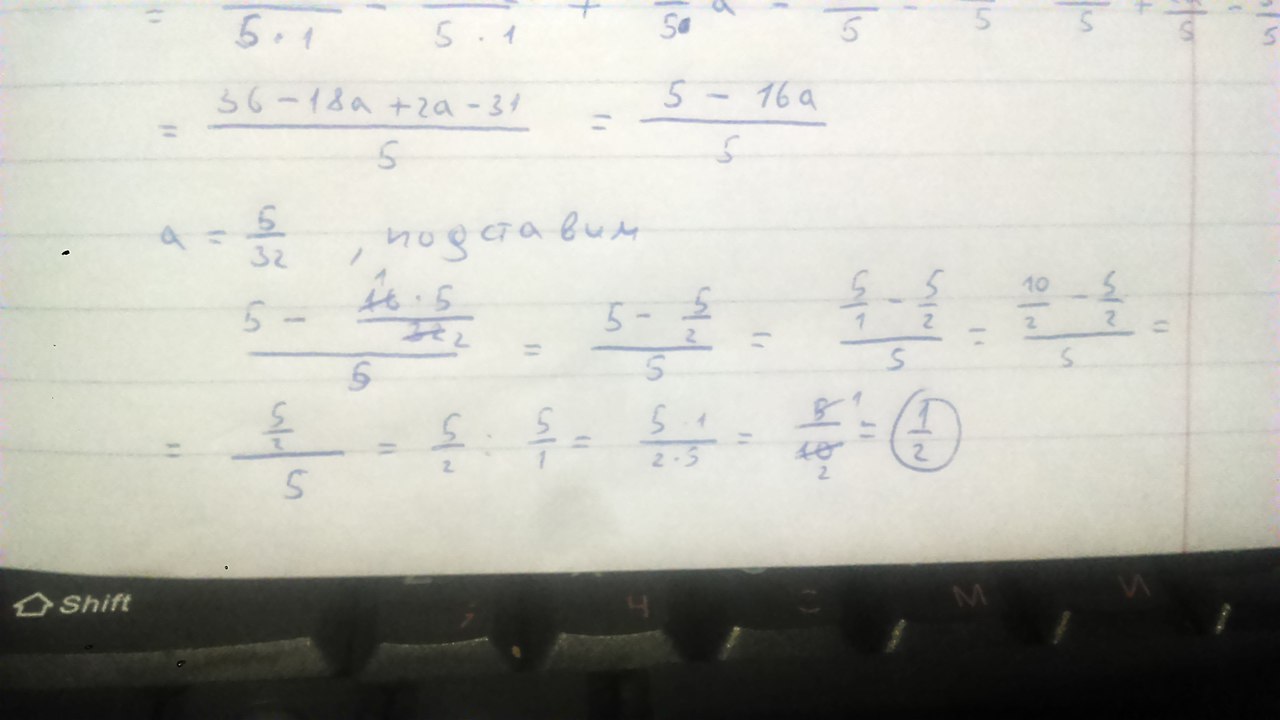 = 5·1 - 5·1 + 5 a - 5 - 5 5 + 5 - 5
= (36 - 18a + 2a - 31)/5 = (5 - 16a)/5
a = 5/32, подставим
(5 - (16·5)/(32))/5 = (5 - 5/2)/5 = (5/1 - 5/2)/5 = (10/2 - 5/2)/5 =
= (5/2)/5 = 5/2 : 5/1 = (5·1)/(2·5) = 5/10 = 1/2
Shift ; ч = м и